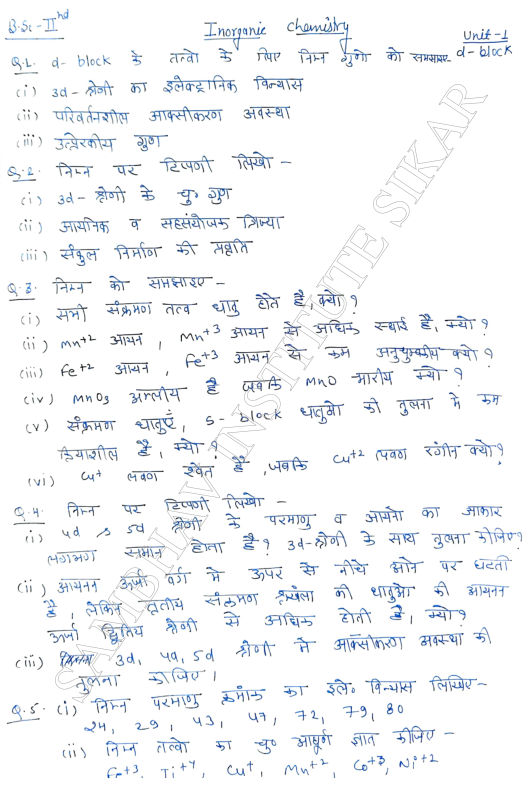 B.Sc-IInd
Inorganic chemistry
Unit-1
d-block
Q.1. d-block के तत्वो के लिए निम्न गुणो को समझाइए
(i) 3d-श्रेणी का इलेक्ट्रानिक विन्यास
(ii) परिवर्तनशील आक्सीकरण अवस्था
(iii) उत्प्रेरकीय गुण
Q.2. निम्न पर टिप्पणी लिखो -
(i) 3d-श्रेणी के चु॰ गुण
(ii) आयनिक व सहसंयोजक त्रिज्या
(iii) संकुल निर्माण की प्रवृति
Q.3. निम्न को समझाइए -
(i) सभी संक्रमण तत्व धातु होते है, क्यो ?
(ii) Mn+2 आयन, Mn+3 आयन से अधिक स्थाई है, क्यो ?
(iii) Fe+2 आयन, Fe+3 आयन से कम अनुचुम्बकीय क्यो ?
(iv) MnO3 अम्लीय है जबकि MnO क्षारीय क्यो ?
(v) संक्रमण धातुएँ, s-block धातुओ की तुलना मे कम
क्रियाशील है, क्यो ?
(vi) Cu+ लवण श्वेत है, जबकि Cu+2 लवण रंगीन क्यो ?
Q.4. निम्न पर टिप्पणी लिखो -
(i) 4d व 5d श्रेणी के परमाणु व आयनो का आकार
लगभग समान होता है ? 3d-श्रेणी के साथ तुलना कीजिए?
(ii) आयनन ऊर्जा वर्ग मे ऊपर से नीचे आने पर घटती
है, लेकिन तृतीय संक्रमण श्रृंखला की धातुओ की आयनन
ऊर्जा द्वितिय श्रेणी से अधिक होती है, क्यो ?
(iii) 3d, 4d, 5d श्रेणी मे आक्सीकरण अवस्था की
तुलना कीजिए।
Q.5. (i) निम्न परमाणु क्रमांक का इले॰ विन्यास लिखिए -
24, 29, 43, 47, 72, 79, 80
(ii) निम्न तत्वो का चु॰ आघूर्ण ज्ञात कीजिए -
Fe+3, Ti+4, Cu+, Mn+2, Co+3, Ni+2
SAMBHAV INSTITUTE SIKAR